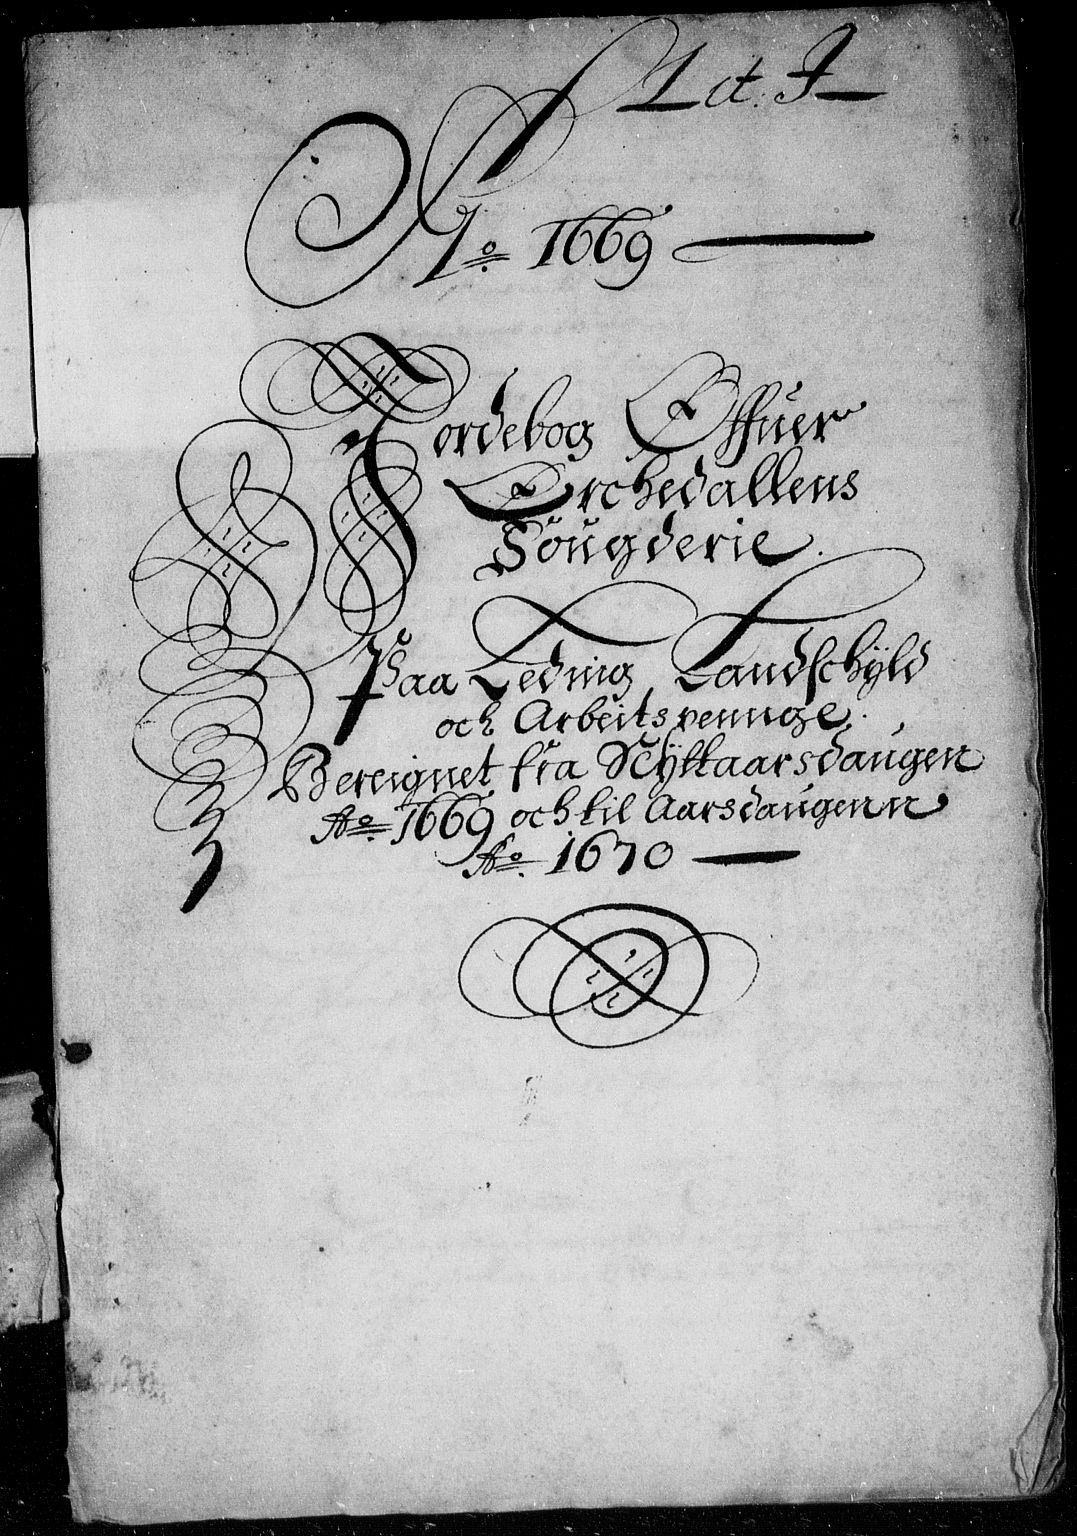 Lit: J
Ao 1669
Jordebog Offuer
Orchedallens
Fougderie.
Paa Leding, Landschÿld
och Arbeitspennge.
Bereignet fra Nÿttaarsdaugen
Ao 1669 och til Aarsdaugenn
Ao 1670